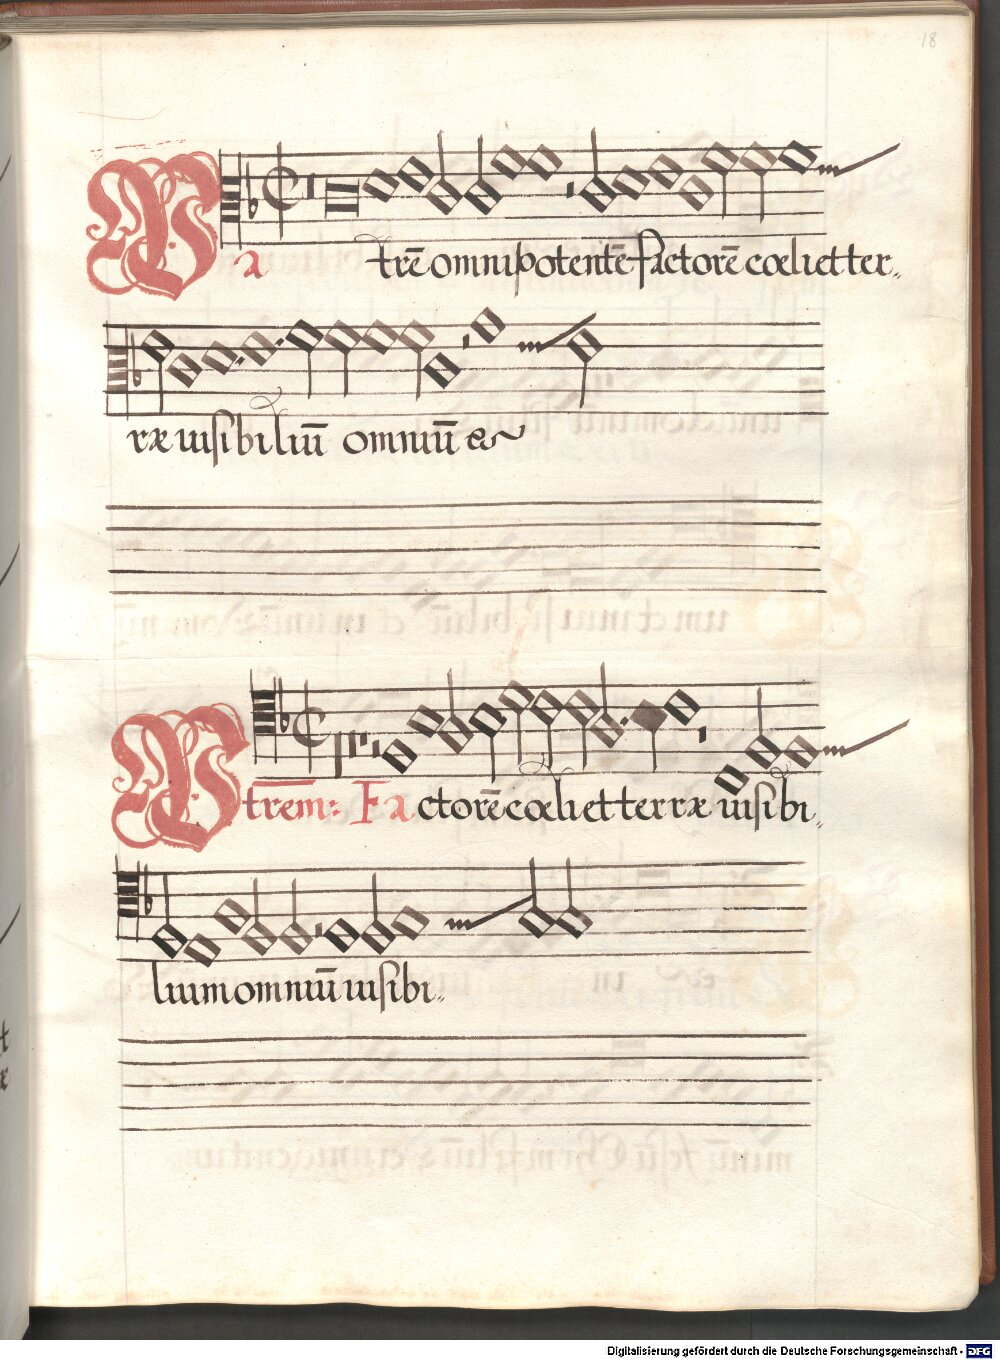 18
Patrē omnipotentē factorē cœli et ter„
ræ uisibiliū omniū &
Patrem: Factorē cœli et terræ uisibi„
lium omniū uisibi„
Digitalisierung gefördert durch die Deutsche Forschungsgemeinschaft - DFG